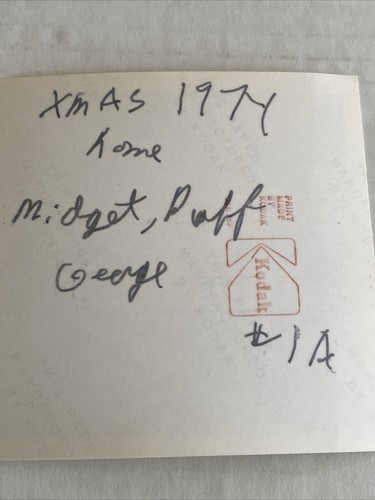 XMAS 1974
home
Midget, Puff
George
PRINT
MADE
BY
KODAK
Kodak
#1A